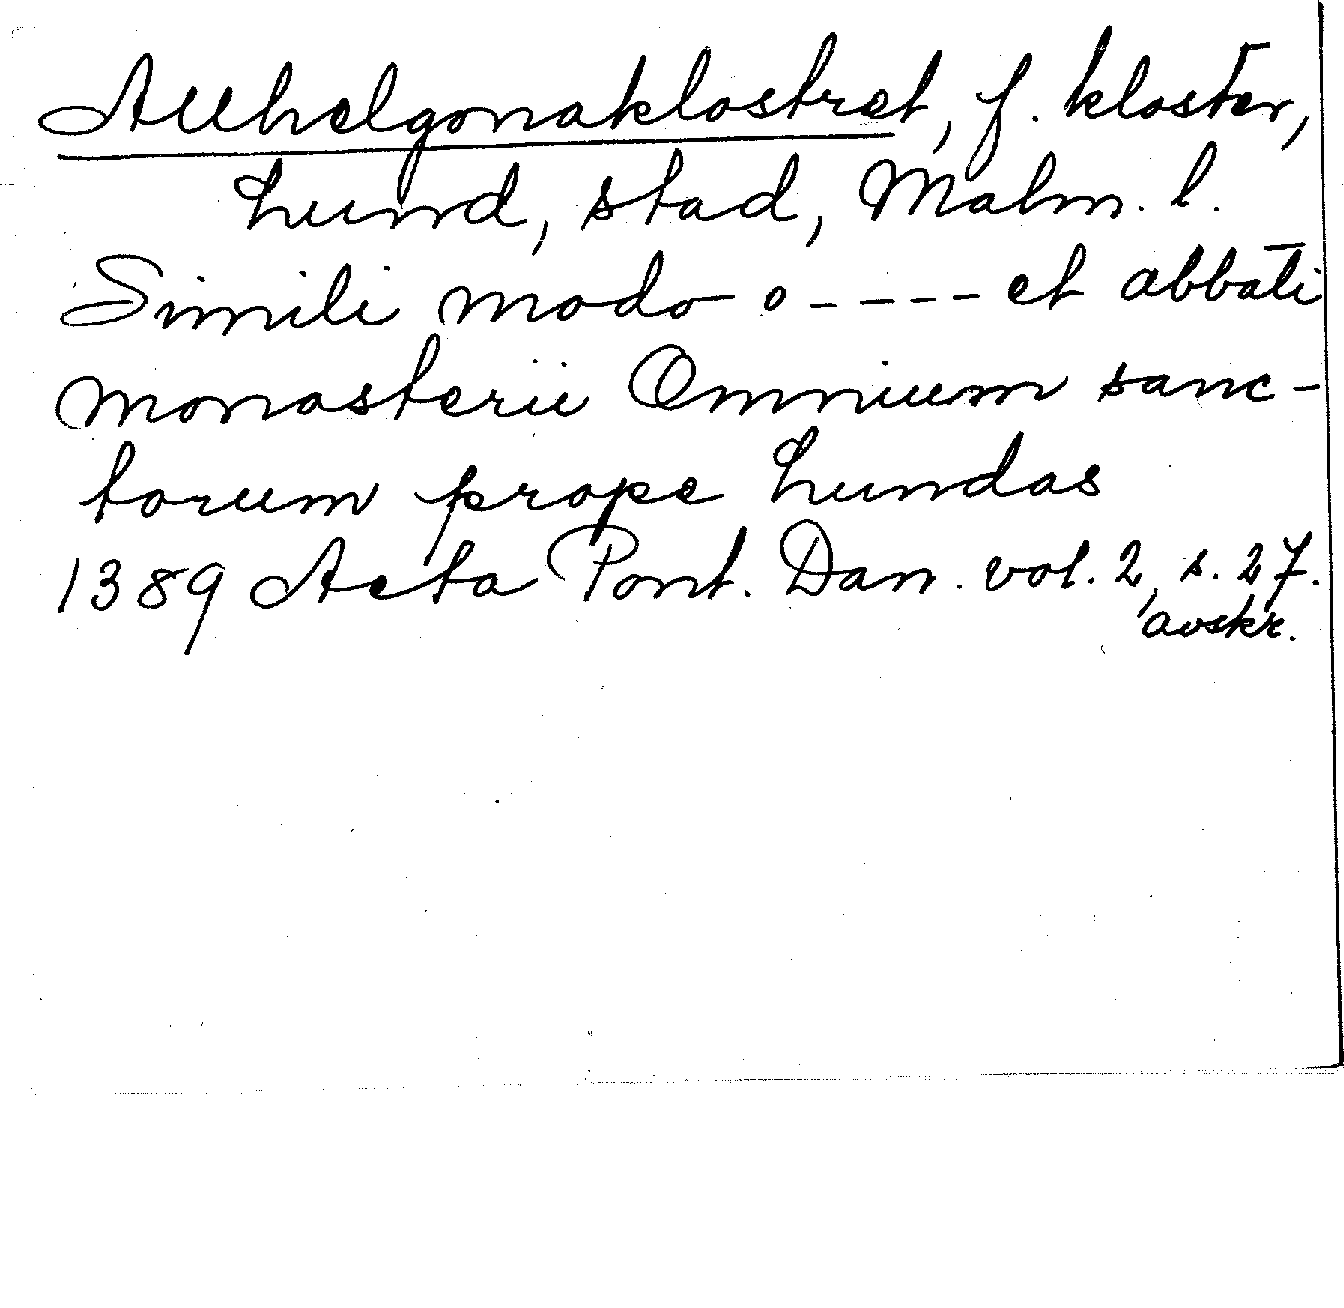 Allhelgonaklostret, f. kloster,
Lund, stad, Malm. l.
Simili modo o - - - - et abbati
monasterii Omnium sanc-
torum prope Lundas
1389 Acta Pont. Dan. vol. 2, s. 27.
avskr.